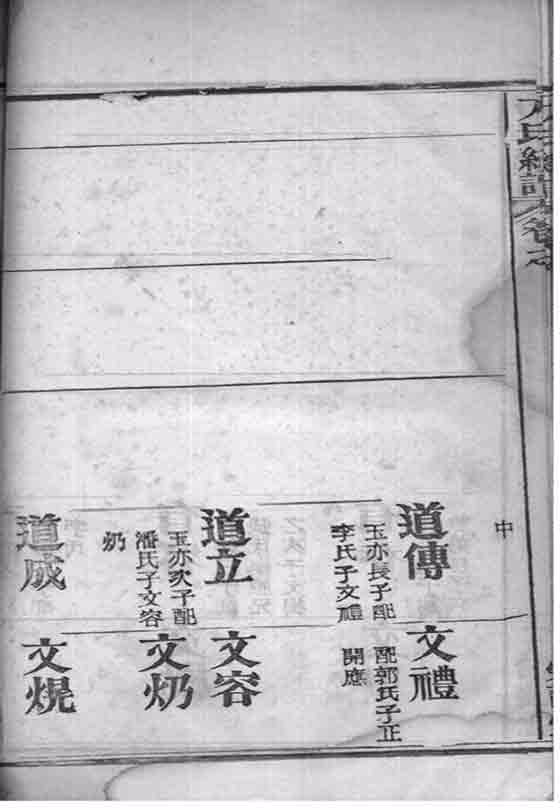 方氏總譜卷之
中
道傳
玉亦長子配
李氏子文禮
道立
玉亦次子配
潘氏子文容
道成
文禮
配郭氏子正
開應
文容
文
文焜